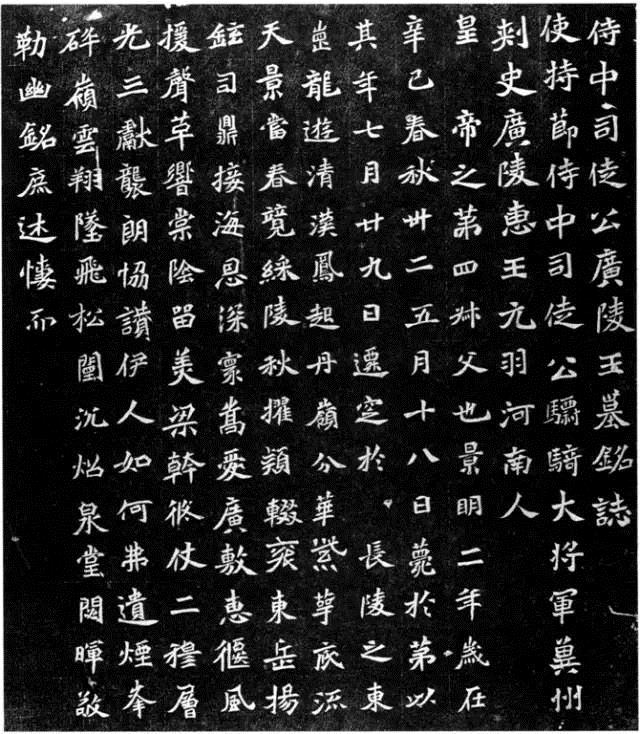 侍中司徒公廣陵王墓銘誌
使持節侍中司徒公驃騎大將軍冀州
刾史廣陵惠王元羽河南人
皇帝之第四叔父也景明二年歲在
辛巳春秋卅二五月十八日薨於第以
其年七月廿九日遷窆於長陵之東
崗龍遊清漢鳳起丹嶺分華紫萼底流
天景當春競綵陵秋擢穎輟袞東岳揚
鉉司鼎接海恩深寰嵩愛廣敷惠偃風
援聲革響棠陰留美梁幹攸仗二穆層
光三獻襲朗協讚伊人如何弗遺煙峯
碎嶺雲翔墜飛松闉沉炤泉堂閟暉敬
勒幽銘庶述悽而